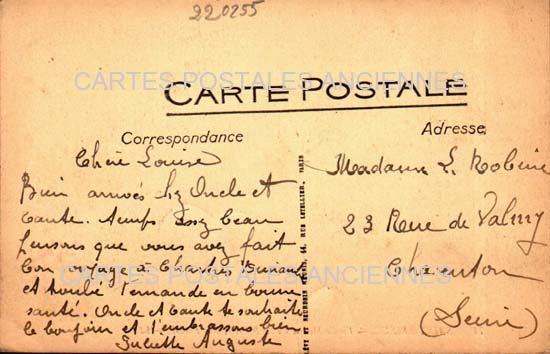 220255
CARTES POSTALES ANCIENNES
CARTE POSTALE
Correspondance
Adresse
Chère Louise
Bien arrivés chz Oncle et
tante. Temps assez beau
pensons que vous avez fait
bon voyage à Chartres
et Loulié Fernande en bonne
santé. Oncle et tante te souhaite
le bonjour et t'embrassons bien
Juliette Auguste
44, RUE LETELLIER, PARIS
Madame L.
23 Rue de Valmy
Charenton
(Seine)
CARTES POSTALES ANCIENNES